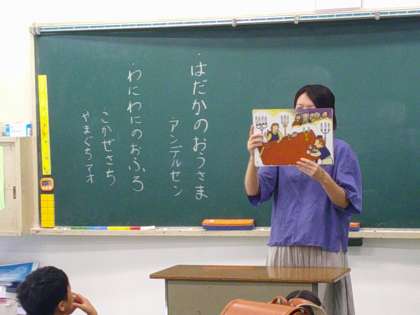 ・はだかのおうさま
アンデルセン
・わにわにのおふろ
こかぜさち
やまぐちマオ